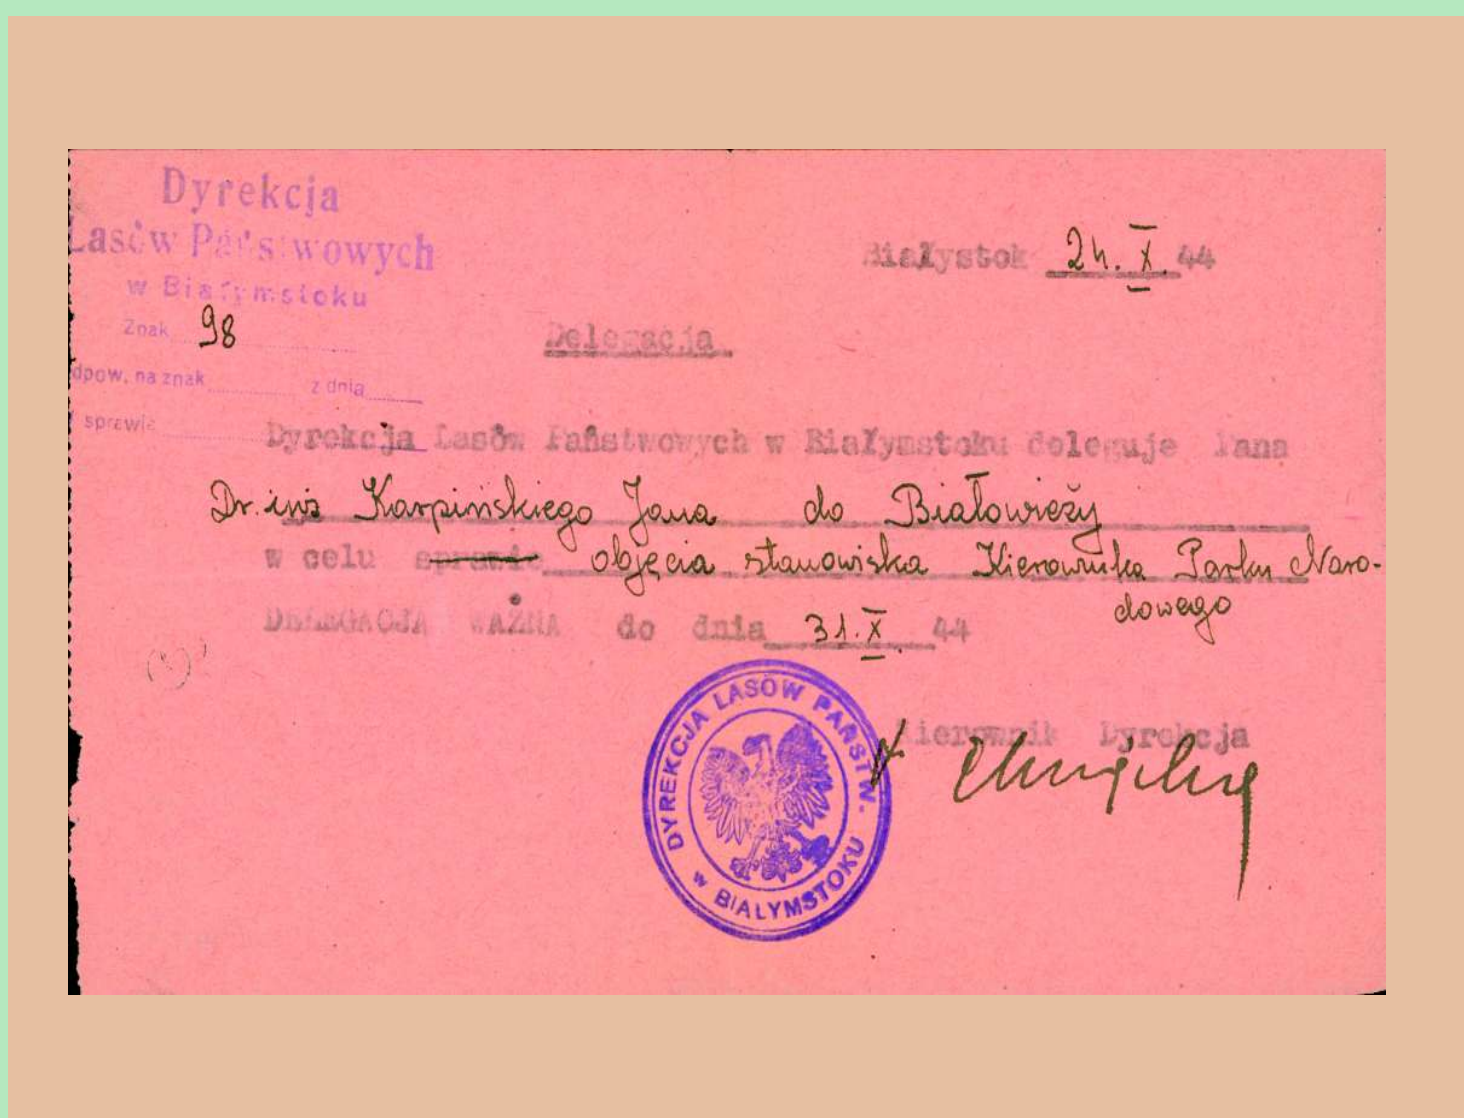 Dyrekcja
Lasów Państwowych
w Białymstoku
Znak 98
dpow. na znak z dnia
sprawie
Białystok 24. X. 44
Delegacja
Dyrekcja Lasów Państwowych w Białymstoku deleguje Pana
Dr. inż Karpińskiego Jana do Białowieży
w celu sprawie objęcia stanowiska Kierownika Parku Naro-
dowego
DELEGACJA WAŻNA do dnia 31. X. 44
Kierownik Dyrekcja
DYREKCJA LASÓW PAŃSTW.
w BIALYMSTOKU